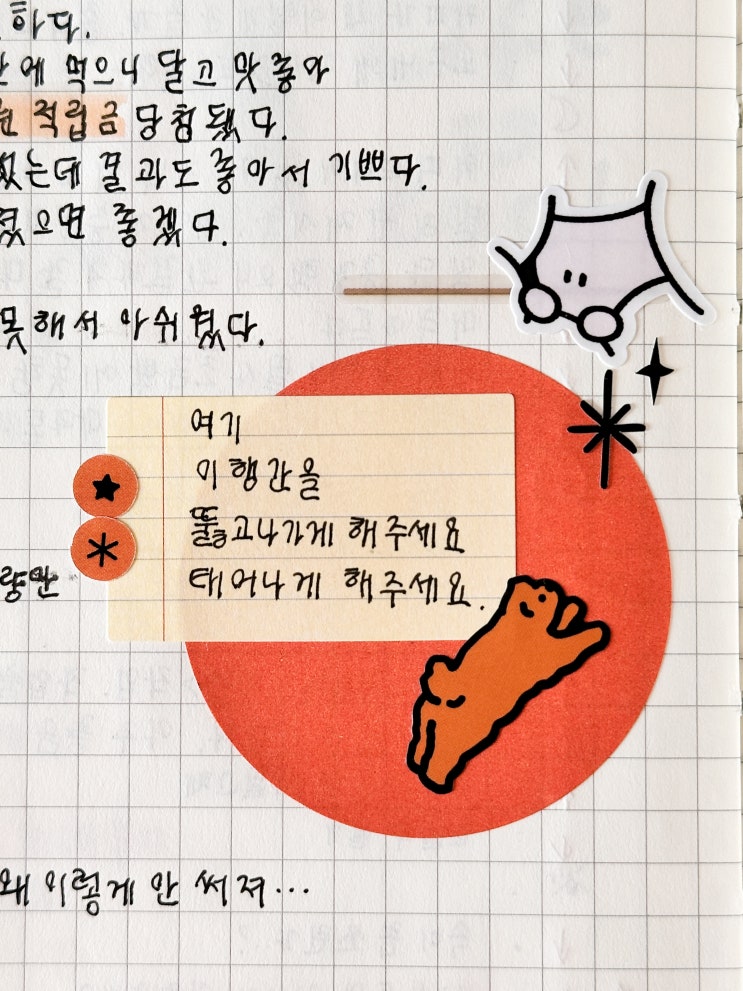 하다.
에 먹으니 달고 맛 좋아
적립금 당첨됐다.
있는데 결과도 좋아서 기쁘다.
으면 좋겠다.
못해서 아쉬웠다.
여기
이 행간을
뚫고나가게 해주세요
태어나게 해주세요.
왜 이렇게 안 써져...